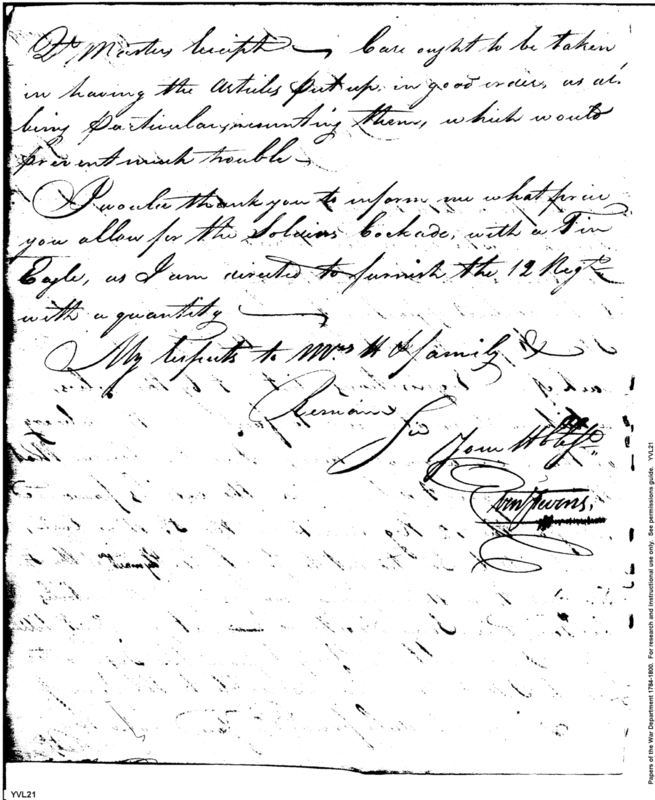 Qr Masters Receipt — Care ought to be taken
in having the Articles put up, in good order, as al
being particular, in counting them, which would
prevent much trouble —
I would thank you to inform me what price
you allow for the Soldiers Cockade, with a Tin
Eagle, as I am directed to furnish the 12 Regt
with a quantity —
My respects to Mrs H & family, &
Remain
Sir
Your
Stevens.
YVL21
Papers of the War Department 1784-1800. For research and instructional use only. See permissions guide. YVL21